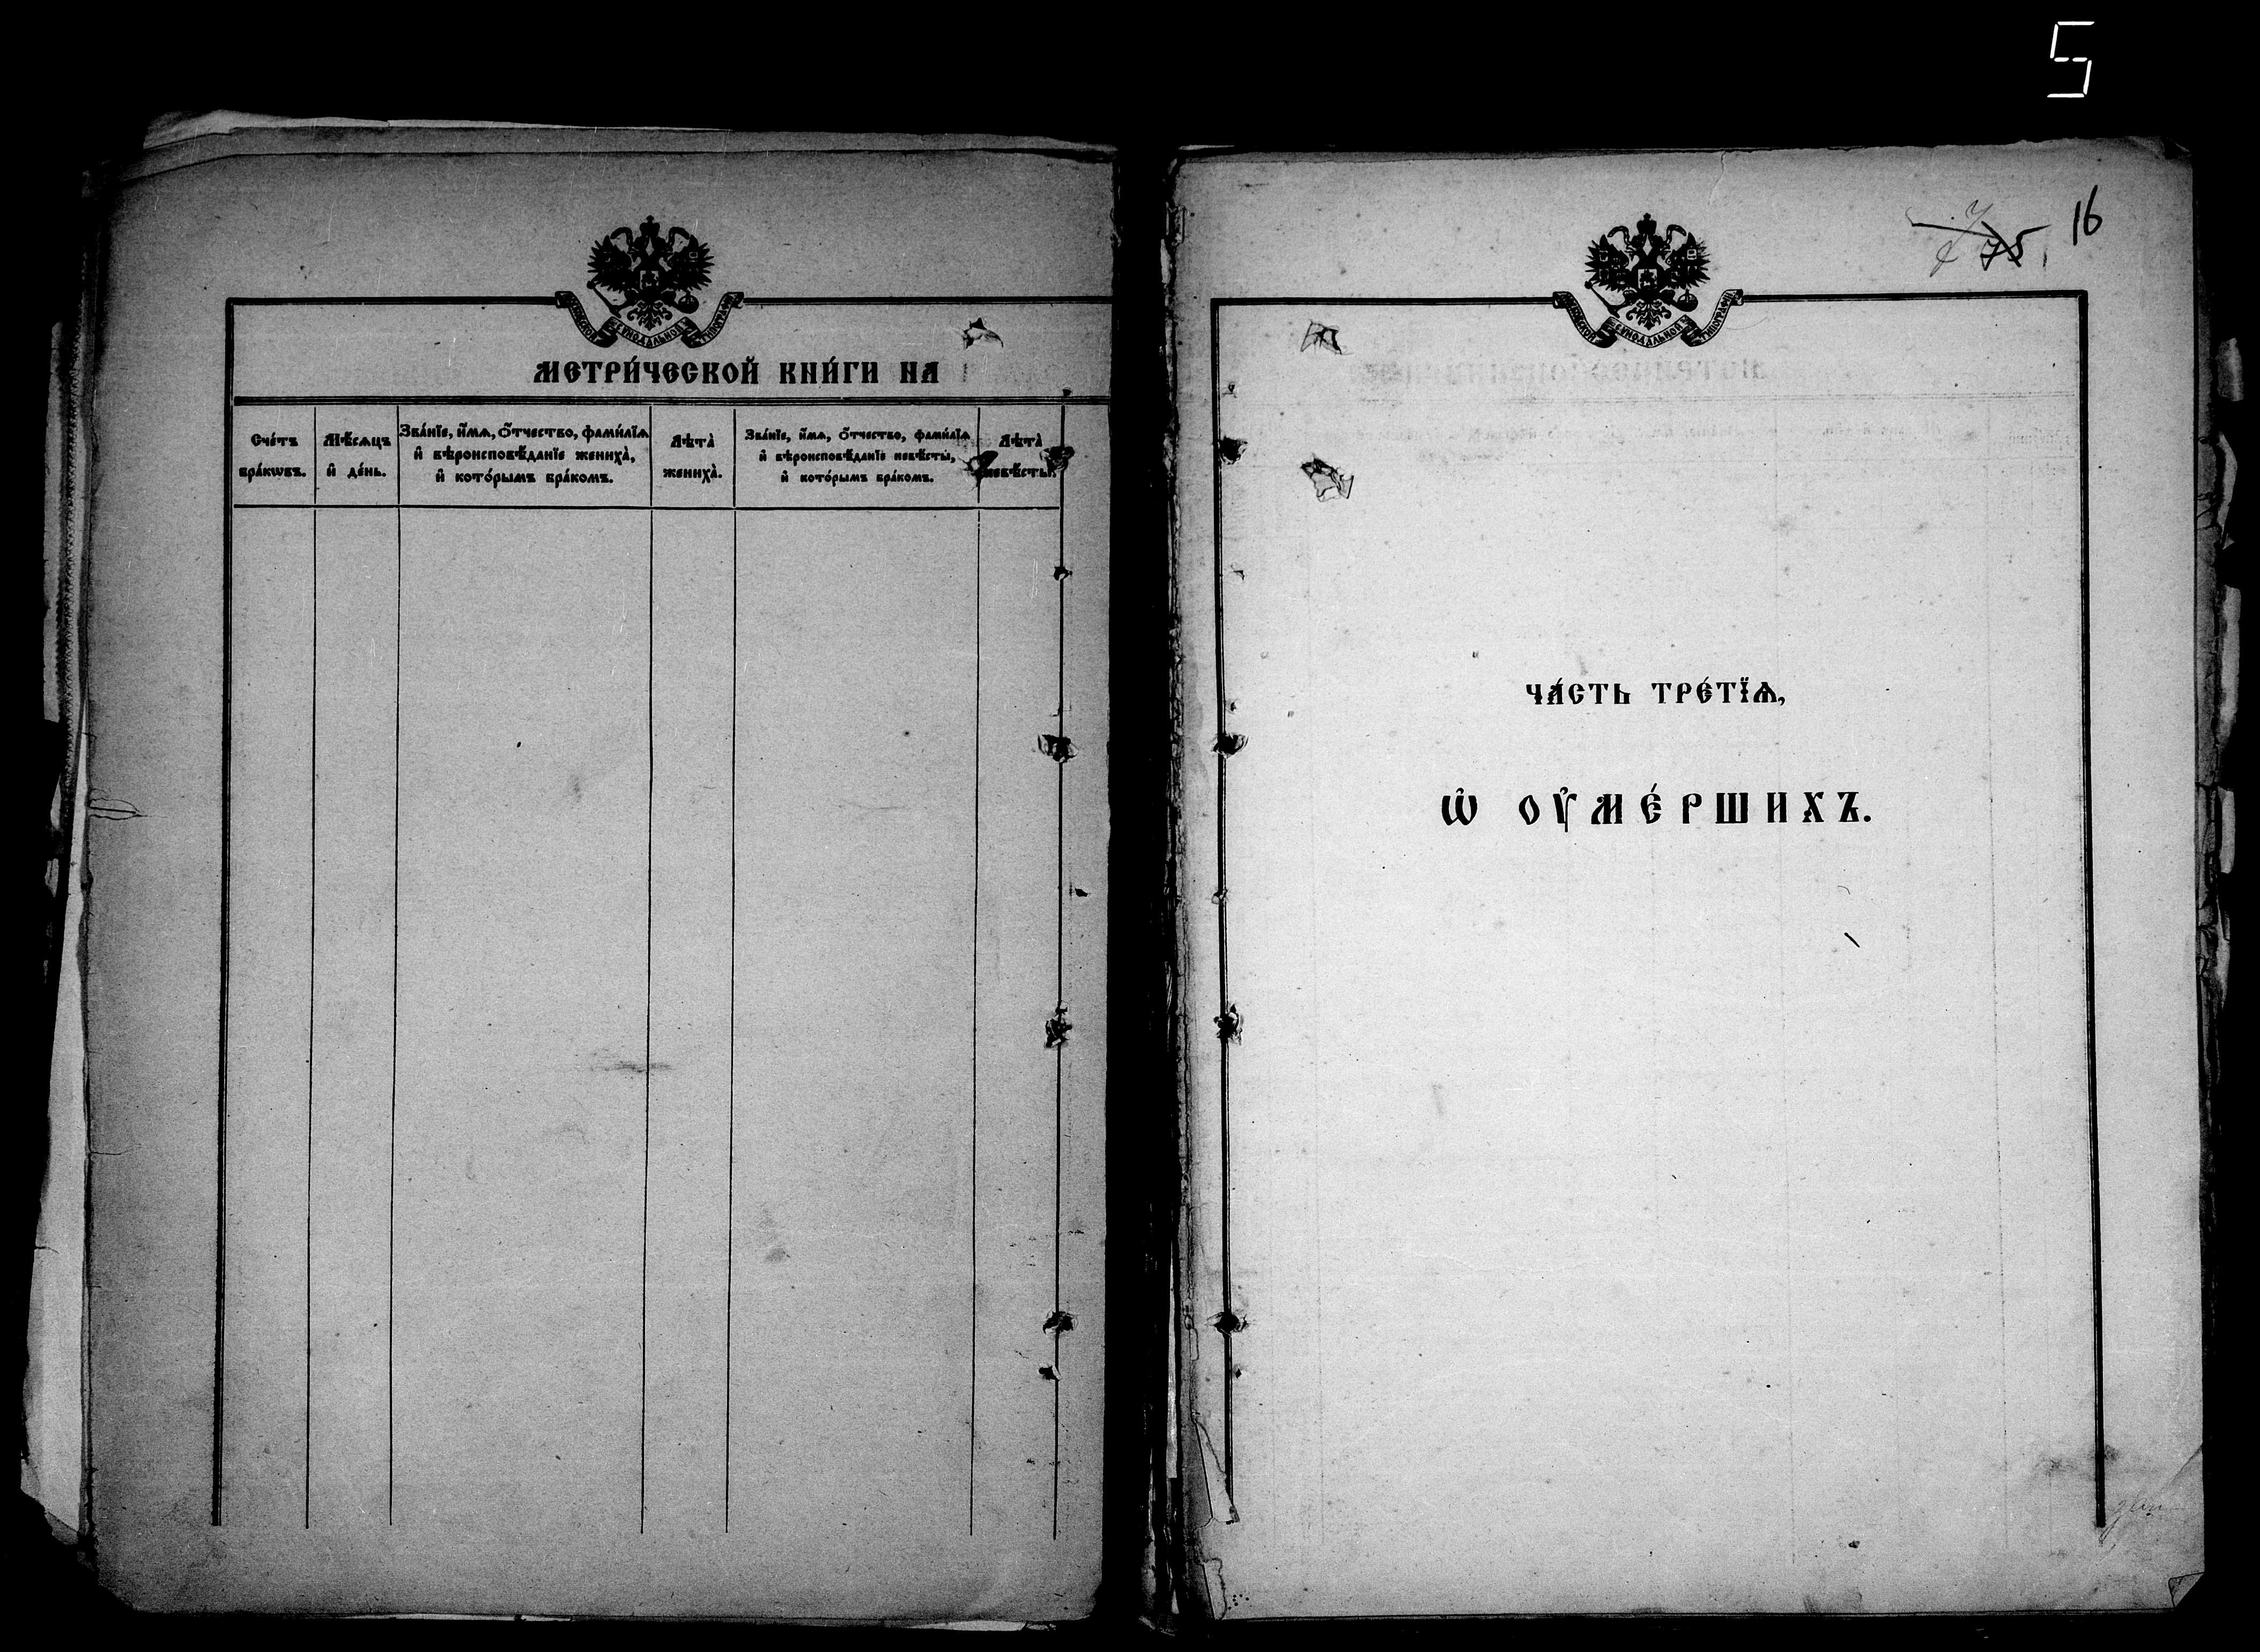 5
МЕТРИ́ЧЕСКОЙ КНИ́ГИ НА 1
Сче́тъ
бра́кѡвъ.
Мѣ́сѧцъ
и҆ де́нь.
Зва́нїе, и҆́мѧ, ѻ҆́тчество, фами́лїѧ
и҆ вѣроисповѣ́данїе жениха̀,
и҆ кото́рымъ бра́комъ.
Лѣта̀
жениха̀.
Зва́нїе, и҆́мѧ, ѻ҆́тчество, фами́лїѧ
и҆ вѣроисповѣ́данїе невѣ́сты,
и҆ кото́рымъ бра́комъ.
Лѣта̀
невѣ́сты.
75
16
ЧА́СТЬ ТРЕ́ТЇѦ,
Ѡ҆ ОУ҆МЕ́РШИХЪ.